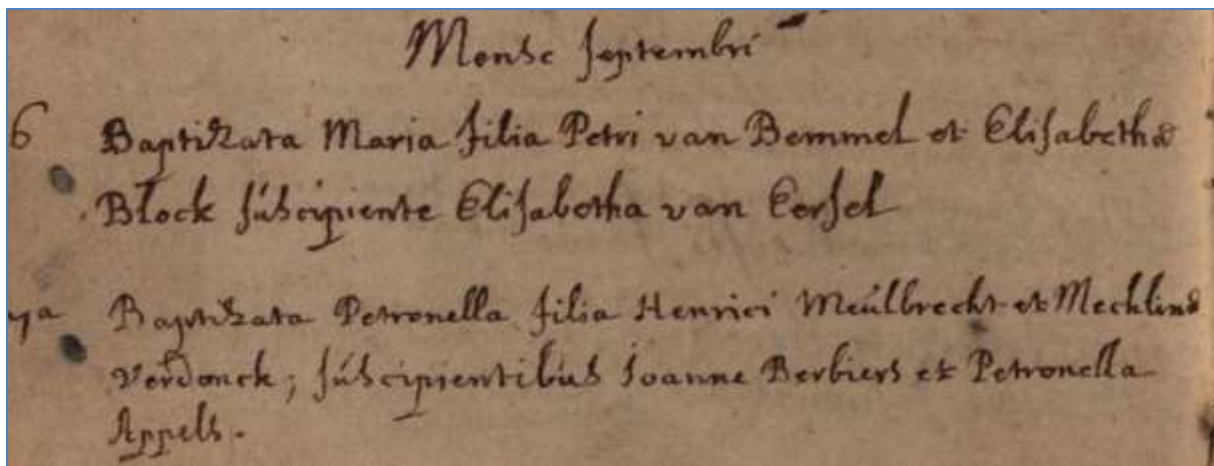 Mense septembri
6 Baptizata Maria filia Petri van Bemmel et Elisabethæ
Block súscipiente Elisabetha van Eersel
7a Baptizata Petronella filia Henrici Meúlbrecht et Mechlinæ
Verdonck; súscipientibús Ioanne Berbiers et Petronella
Appels.